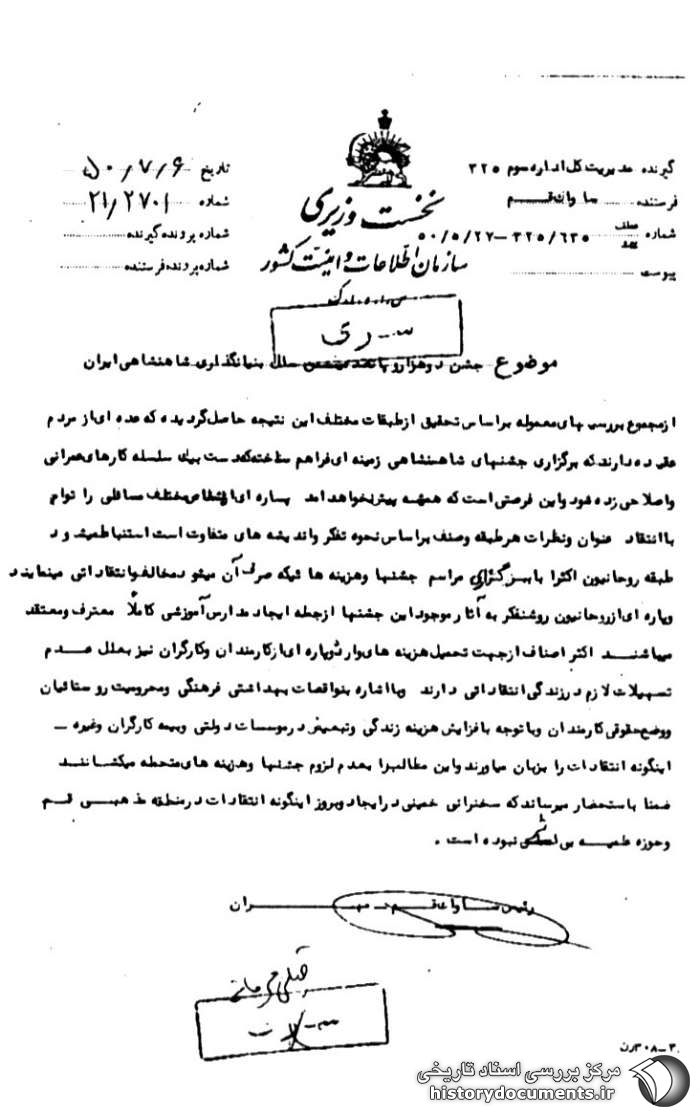 گیرنده مدیریت کل اداره سوم ۳۲۵
فرستنده ساواک قم
شماره ۳۲۵/۶۳۵-۵۰/۵/۲۷
پیوست
نخست وزیری
سازمان اطلاعات و امنیت کشور
تاریخ ۵۰/۷/۶
شماره ۲۱/۲۷۰۱
شماره پرونده گیرنده
شماره پرونده فرستنده
سری
موضوع جشن دوهزاروپانصدمین سال بنیانگذاری شاهنشاهی ایران
ازمجموع بررسیهای معموله براساس تحقیق ازطبقات مختلف این نتیجه حاصل گردیده که عده ای از مردم
عقیده دارند که برگزاری جشنهای شاهنشاهی زمینه ای فراهم ساخته که دست بیک سلسله کارهای عمرانی
واصلاحی زده شود واین فرصتی است که همیشه پیش نخواهد آمد پاره ای اشخاص مختلف مسائلی را توام
باانتقاد عنوان ونظرات هرطبقه وصنف براساس نحوه تفکر واندیشه های متفاوت است
طبقه روحانیون اکثرا با برگزاری مراسم جشنها وهزینه هائیکه صرف آن میشود مخالف وانتقاداتی مینمایند
وپاره ای ازروحانیون روشنفکر به آثار موجود این جشنها ازجمله ایجاد مدارس آموزشی کاملاً معترف ومعتقد
میباشند اکثر اصناف ازجهت تحمیل هزینه های وارده وپاره ای ازکارمندان وکارگران نیز بعلل عدم
تسهیلات لازم درزندگی انتقاداتی دارند وبااشاره بنواقصات بهداشتی فرهنگی ومحرومیت روستائیان
ووضع حقوقی کارمندان وباتوجه بافزایش هزینه زندگی وتبعیض درموسسات دولتی وبیمه کارگران وغیره –
اینگونه انتقادات را بزبان میاورند واین مطالب را بعدم لزوم جشنها وهزینه های متحمله میکشانند
ضمنا باستحضار میرساند که سخنرانی خمینی درایجاد وبروز اینگونه انتقادات درمنطقه مذهبی قم
وحوزه علمیه بی اثر نبوده است .
رئیس ساواک قم – مهران
۳۰۸-۳۰رن
مرکز بررسی اسناد تاریخی
historydocuments.ir